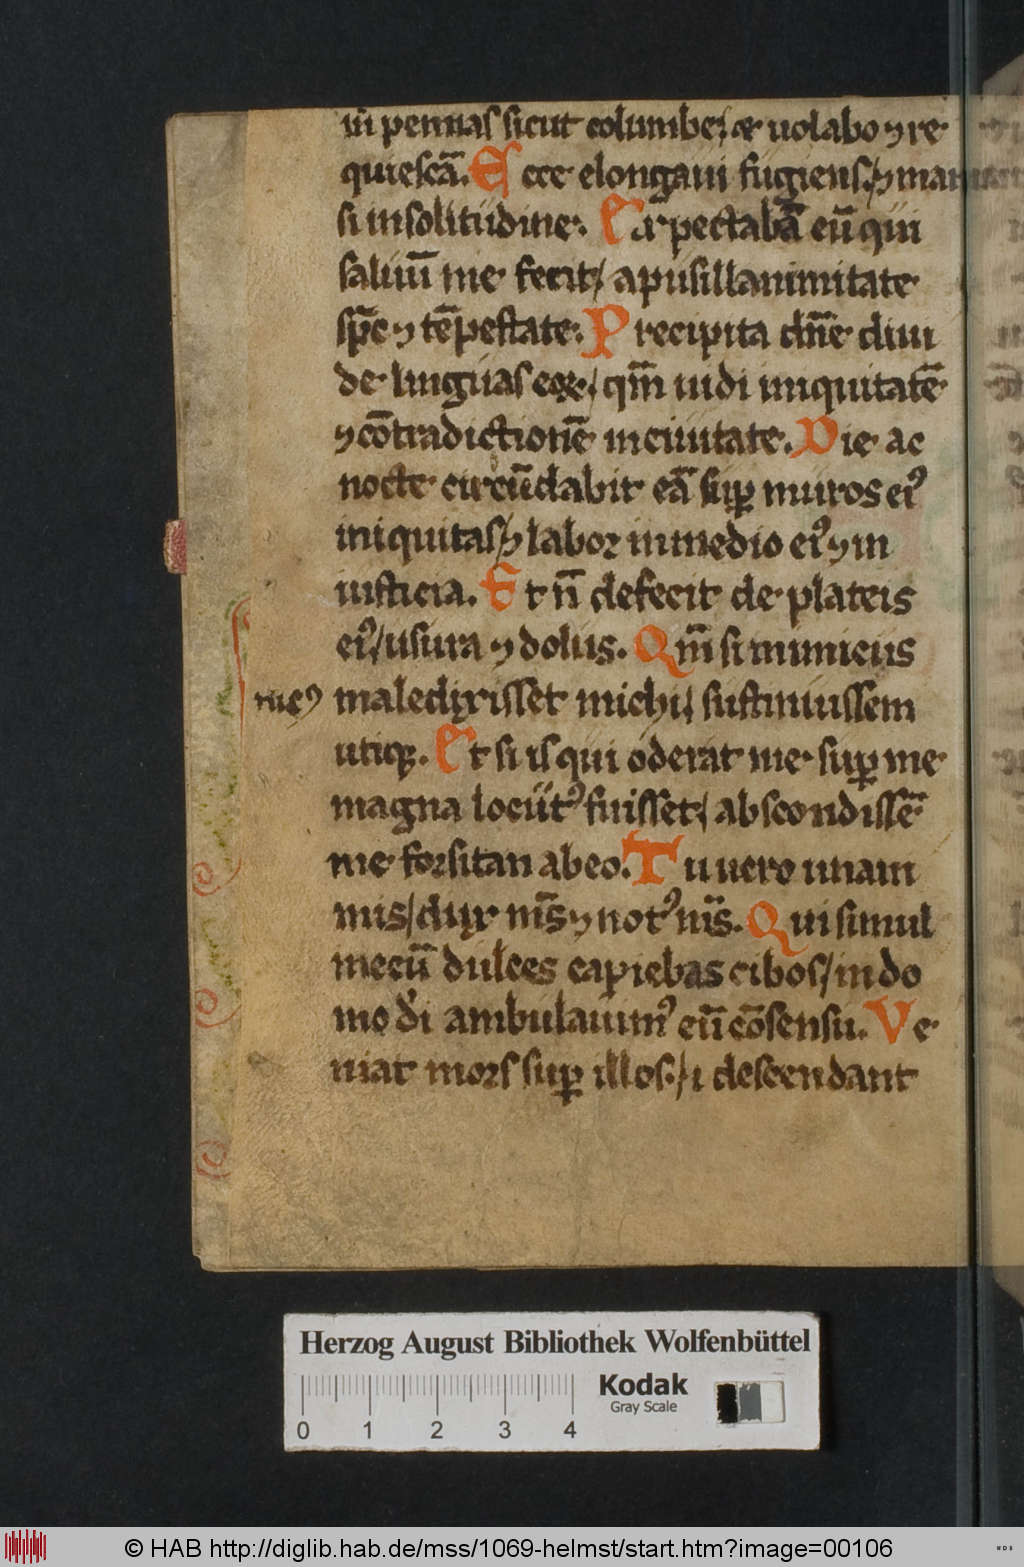 in̄ pennas sicut columbe / et uolabo ⁊ re
quiescā. Ecce elongaui fugiens / ⁊ man
si in solitudine. Expectabā eū qui
saluū me fecit / a pusillanimitate
sp̄c ⁊ tēpestate. Precipita dn̄e diui
de linguas eoꝝ / qm̄ uidi iniquitatē
⁊ cōtradictionē in ciuitate. Die ac
nocte circūdabit eā suꝑ muros eiꝰ
iniquitas / ⁊ labor in medio eiꝰ ⁊ in
iusticia. Et n̄ defecit de plateis
eiꝰ / usura ⁊ dolus. Qm̄ si inimicus
meꝰ maledixisset michi / sustinuissem
utiqꝫ. Et si is qui oderat me suꝑ me
magna locutꝰ fuisset / abscondissē
me forsitan ab eo. Tu uero unani
mis / dux m̄s ⁊ notꝰ m̄s. Qui simul
mecū dulces capiebas cibos / in do
mo di ambulauimꝰ cū cōsensu. Ve
niat mors suꝑ illos / ⁊ descendant
Herzog August Bibliothek Wolfenbüttel
Kodak
Gray Scale
0 1 2 3 4
© HAB http://diglib.hab.de/mss/1069-helmst/start.htm?image=00106